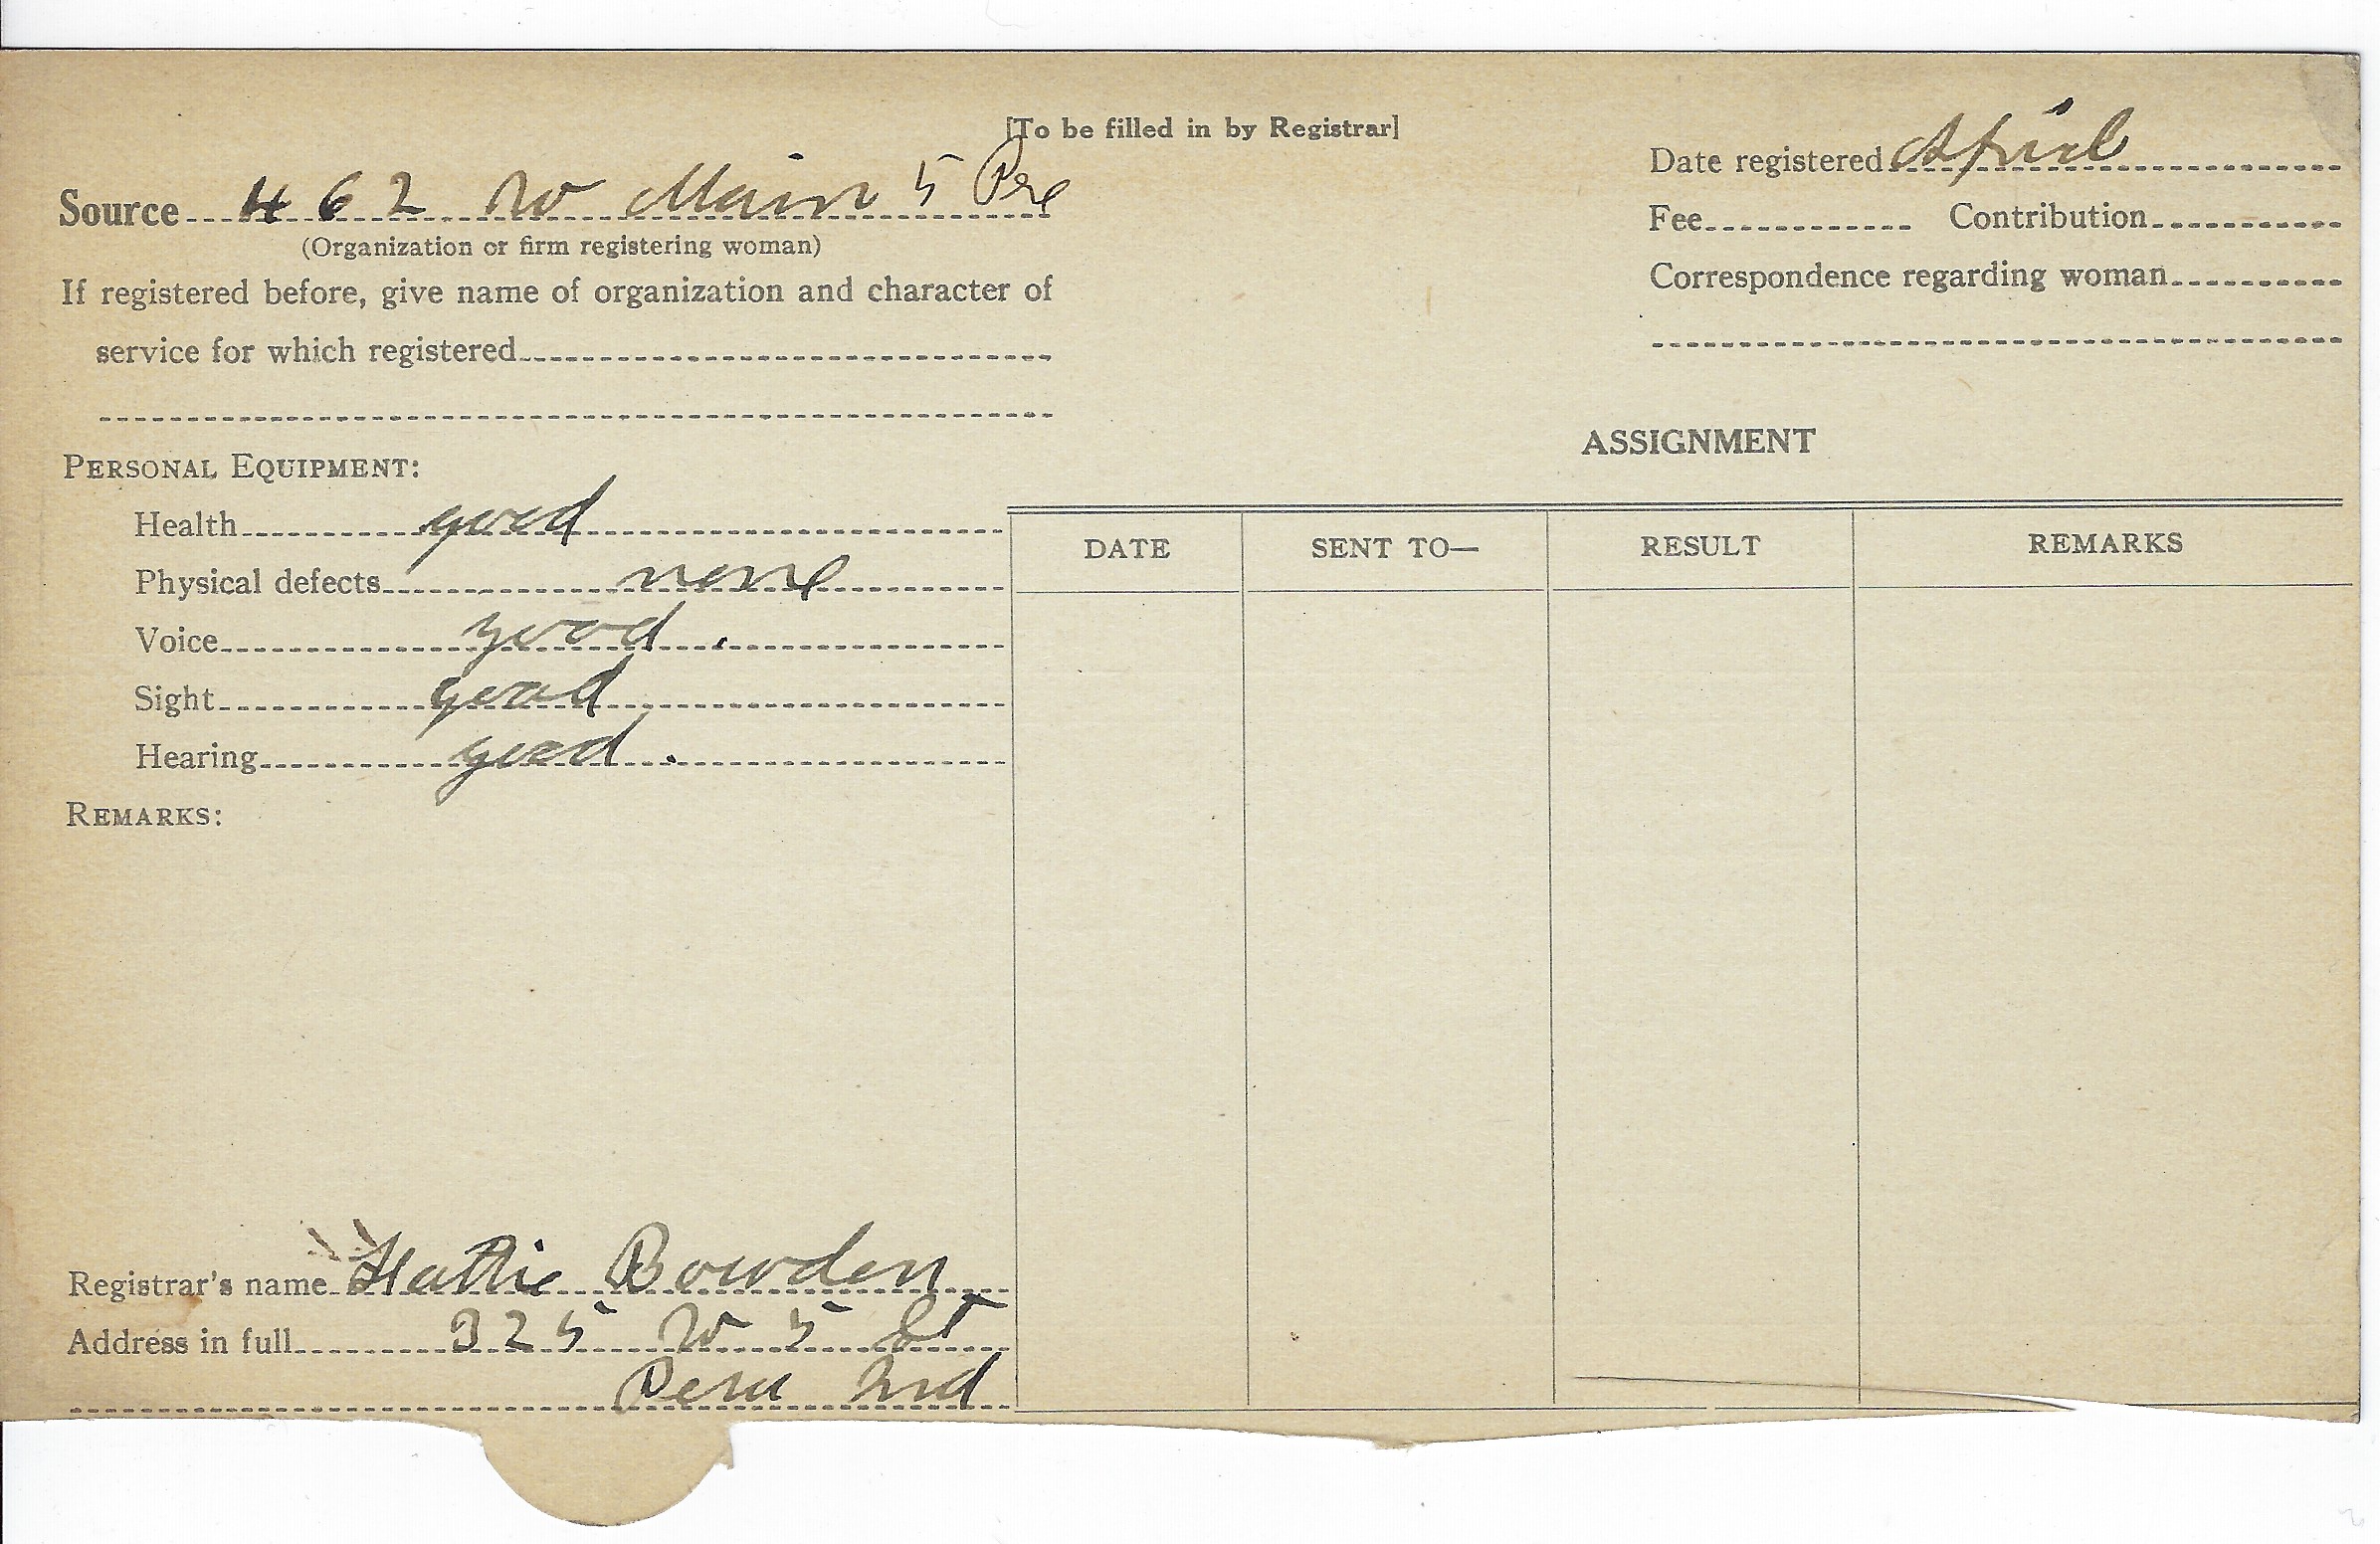 [To be filled in by Registrar]
Date registered April
Source 462 W Main 5 Pre
(Organization or firm registering woman)
Fee Contribution
If registered before, give name of organization and character of
service for which registered
Correspondence regarding woman
ASSIGNMENT
PERSONAL EQUIPMENT:
Health good
Physical defects none
Voice good.
Sight good
Hearing good.
DATE SENT TO— RESULT REMARKS
REMARKS:
Registrar's name Hattie Bowden
Address in full 325 W 5 St
Peru Ind